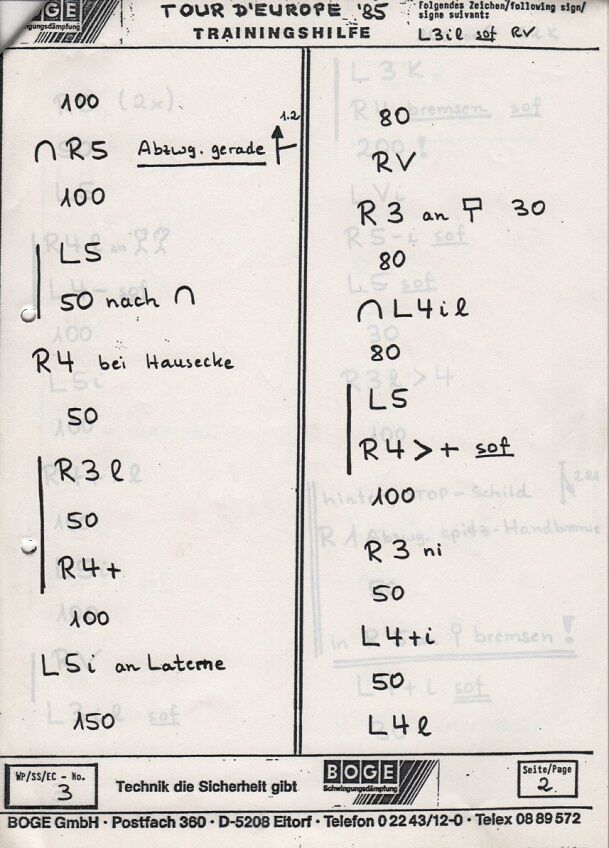 BOGE
Schwingungsdämpfung
TOUR D'EUROPE '85
TRAININGSHILFE
Folgendes Zeichen/following sign/
signe suivant:
L3il sof RV
100
∩ R5 Abzwg. gerade 1.2
100
L5
50 nach ∩
R4 bei Hausecke
50
R3l
50
R4+
100
L5i an Laterne
150
80
RV
R3 an 30
80
∩ L4il
80
L5
R4>+ sof
100
R3 ni
50
L4+i
50
L4l
WP/SS/EC - No.
3
Technik die Sicherheit gibt
BOGE
Schwingungsdämpfung
Seite/Page
2
BOGE GmbH · Postfach 360 · D-5208 Eitorf · Telefon 0 22 43/12-0 · Telex 08 89 572